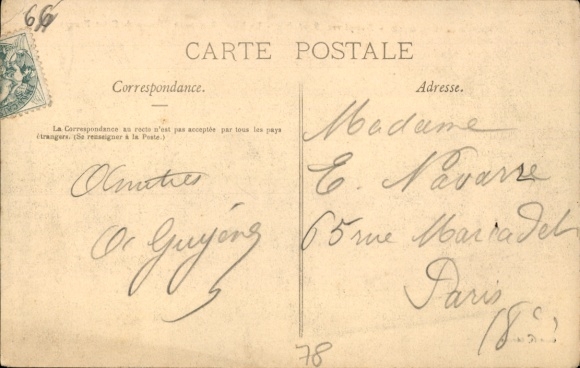 66
CARTE POSTALE
Correspondance.
La Correspondance au recto n'est pas acceptée par tous les pays
étrangers. (Se renseigner à la Poste.)
Amitiés
Guyène
Adresse.
Madame
E. Navarre
65 rue Marcadet
Paris
(18
78